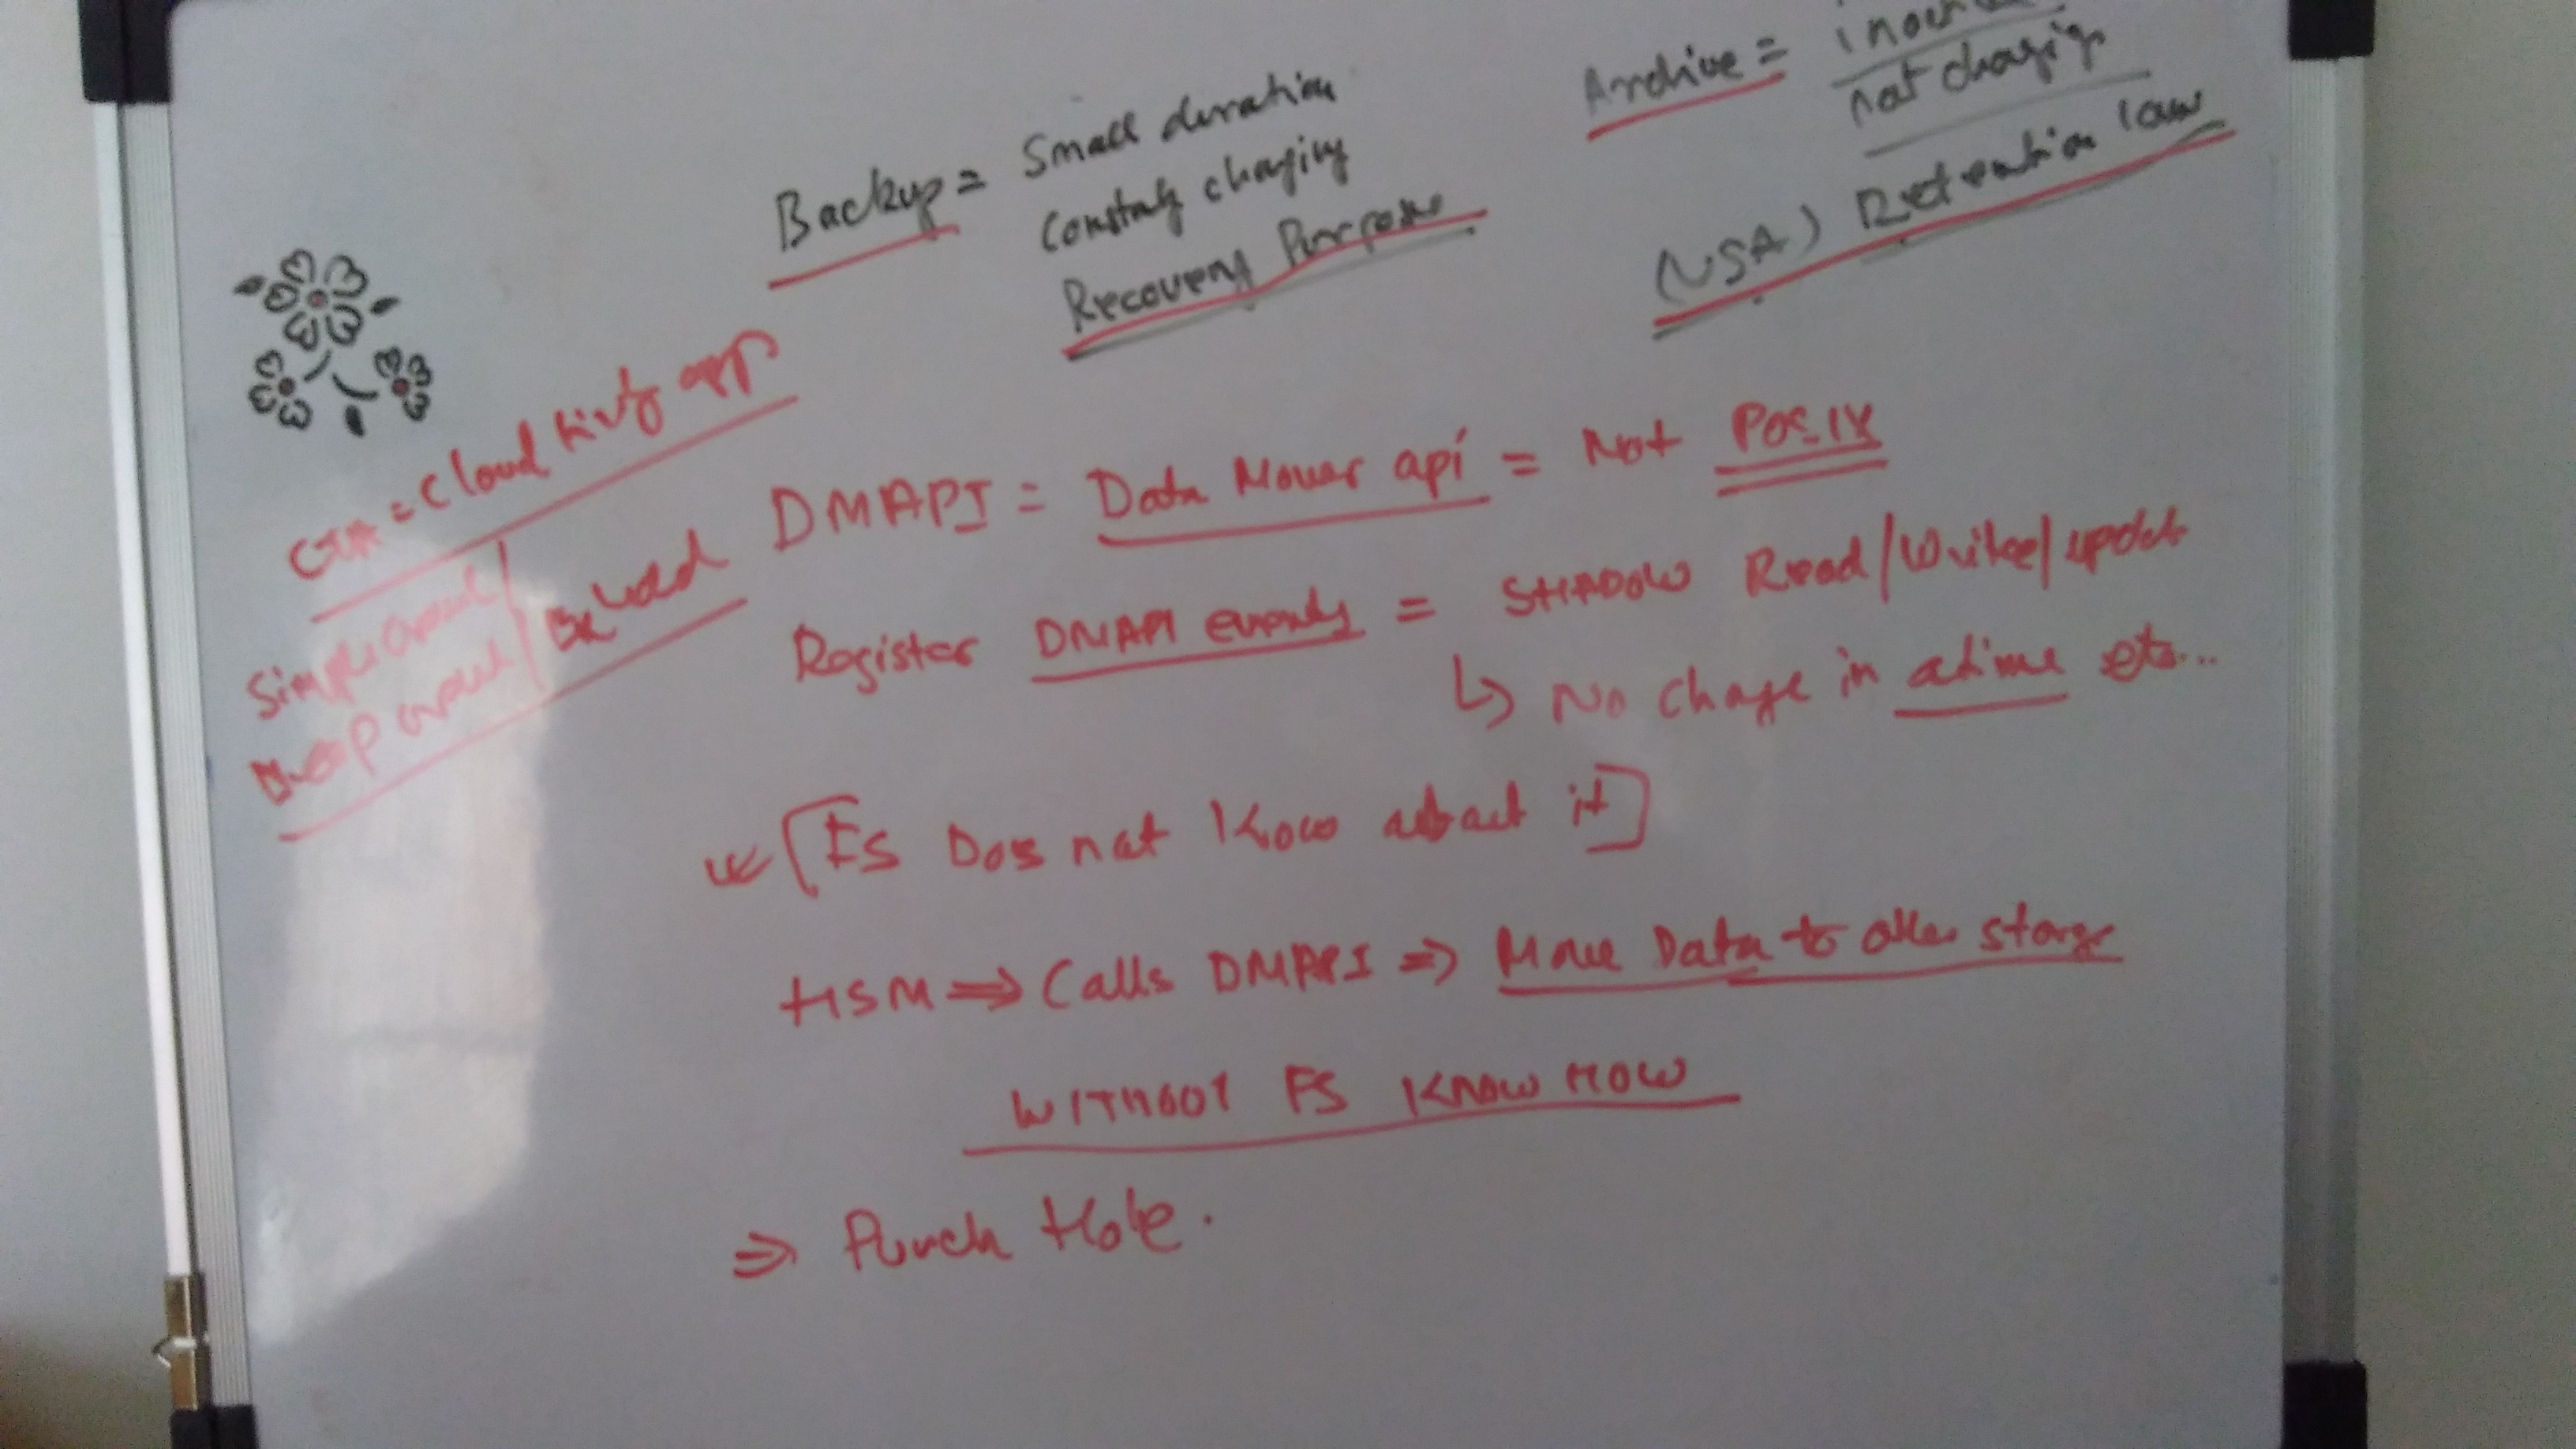 Backup = Small duration
Constaly chaging
Recovery Purpose
Archive =
not chaging
(USA) Retention law
= Cloud app
DMAPI = Data Mover api = Not Posix
Register DMAPI events = SHADOW Read/Write/updat
↳ No chage in atime etc...
[FS Dos not Know about it]
HSM ⇒ Calls DMAPI ⇒ Move Data to other storge
WITHOUT FS KNOW HOW
⇒ Punch Hole.